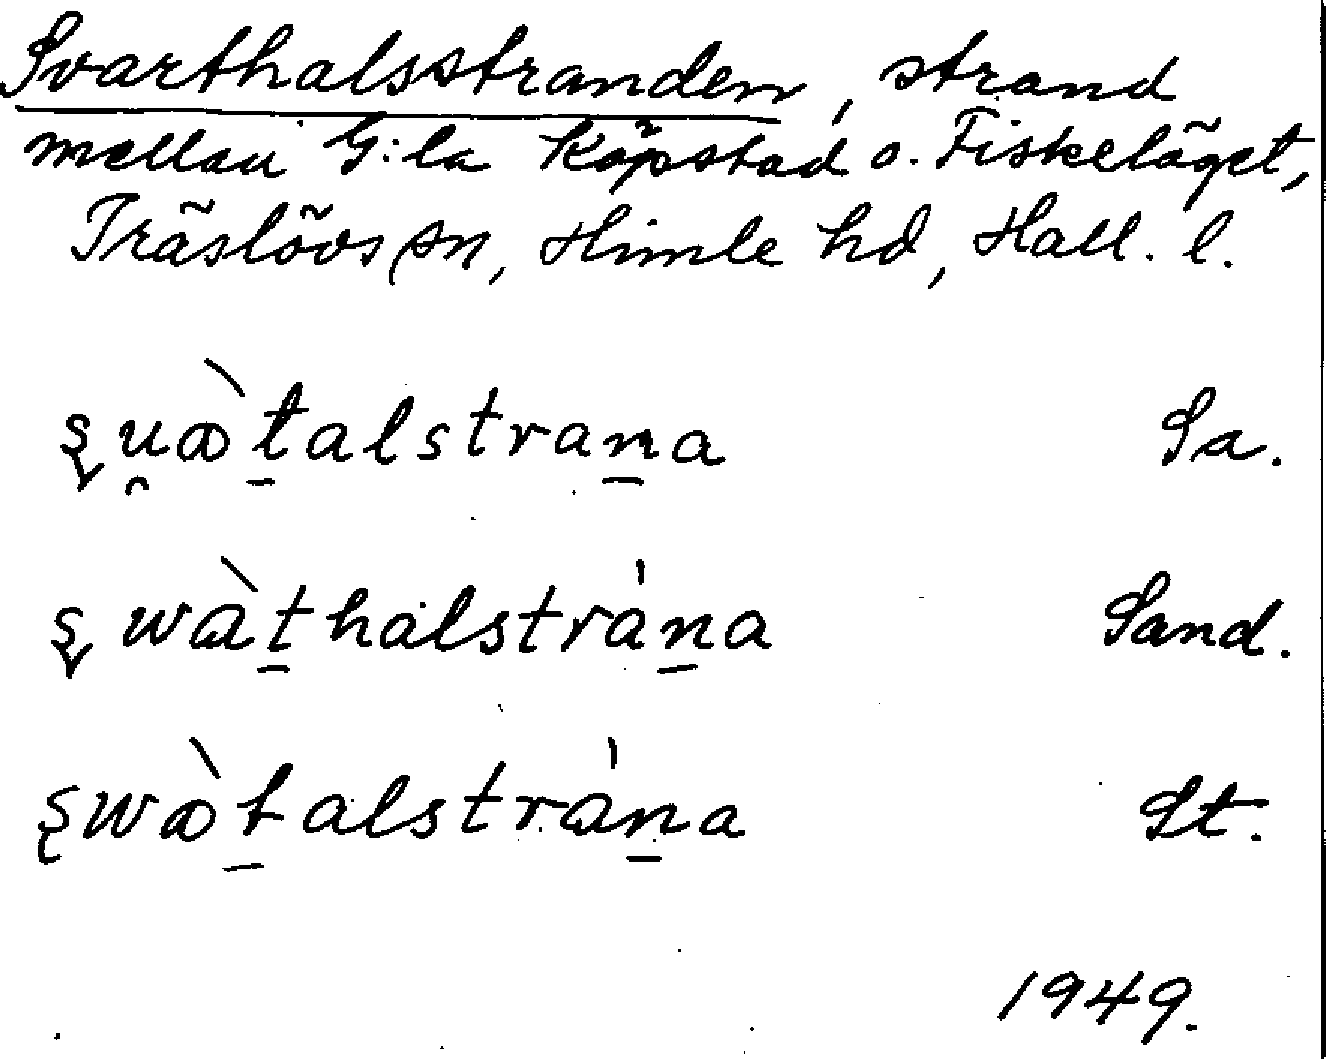 Svarthalsstranden, strand
mellan G:la Köpstad o. Fiskeläget,
Träslövs sn, Himle hd, Hall. l.
s̬u̯ɑ̀t̠alstran̠a Sa.
s̬wàt̠halstrán̠a Sand.
s̨wɑ̀t̠alstrán̠a St.
1949.